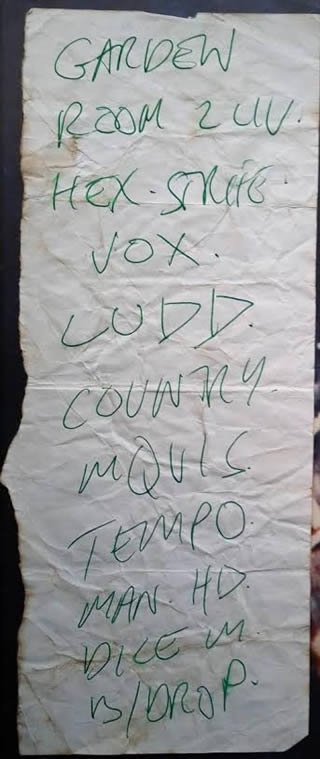 GARDEN
ROOM 2 LIV.
HEX. STRIFE.
VOX.
LUDD.
COUNTRY.
MQUIS.
TEMPO.
MAN. HD.
DICE M.
B/DROP.